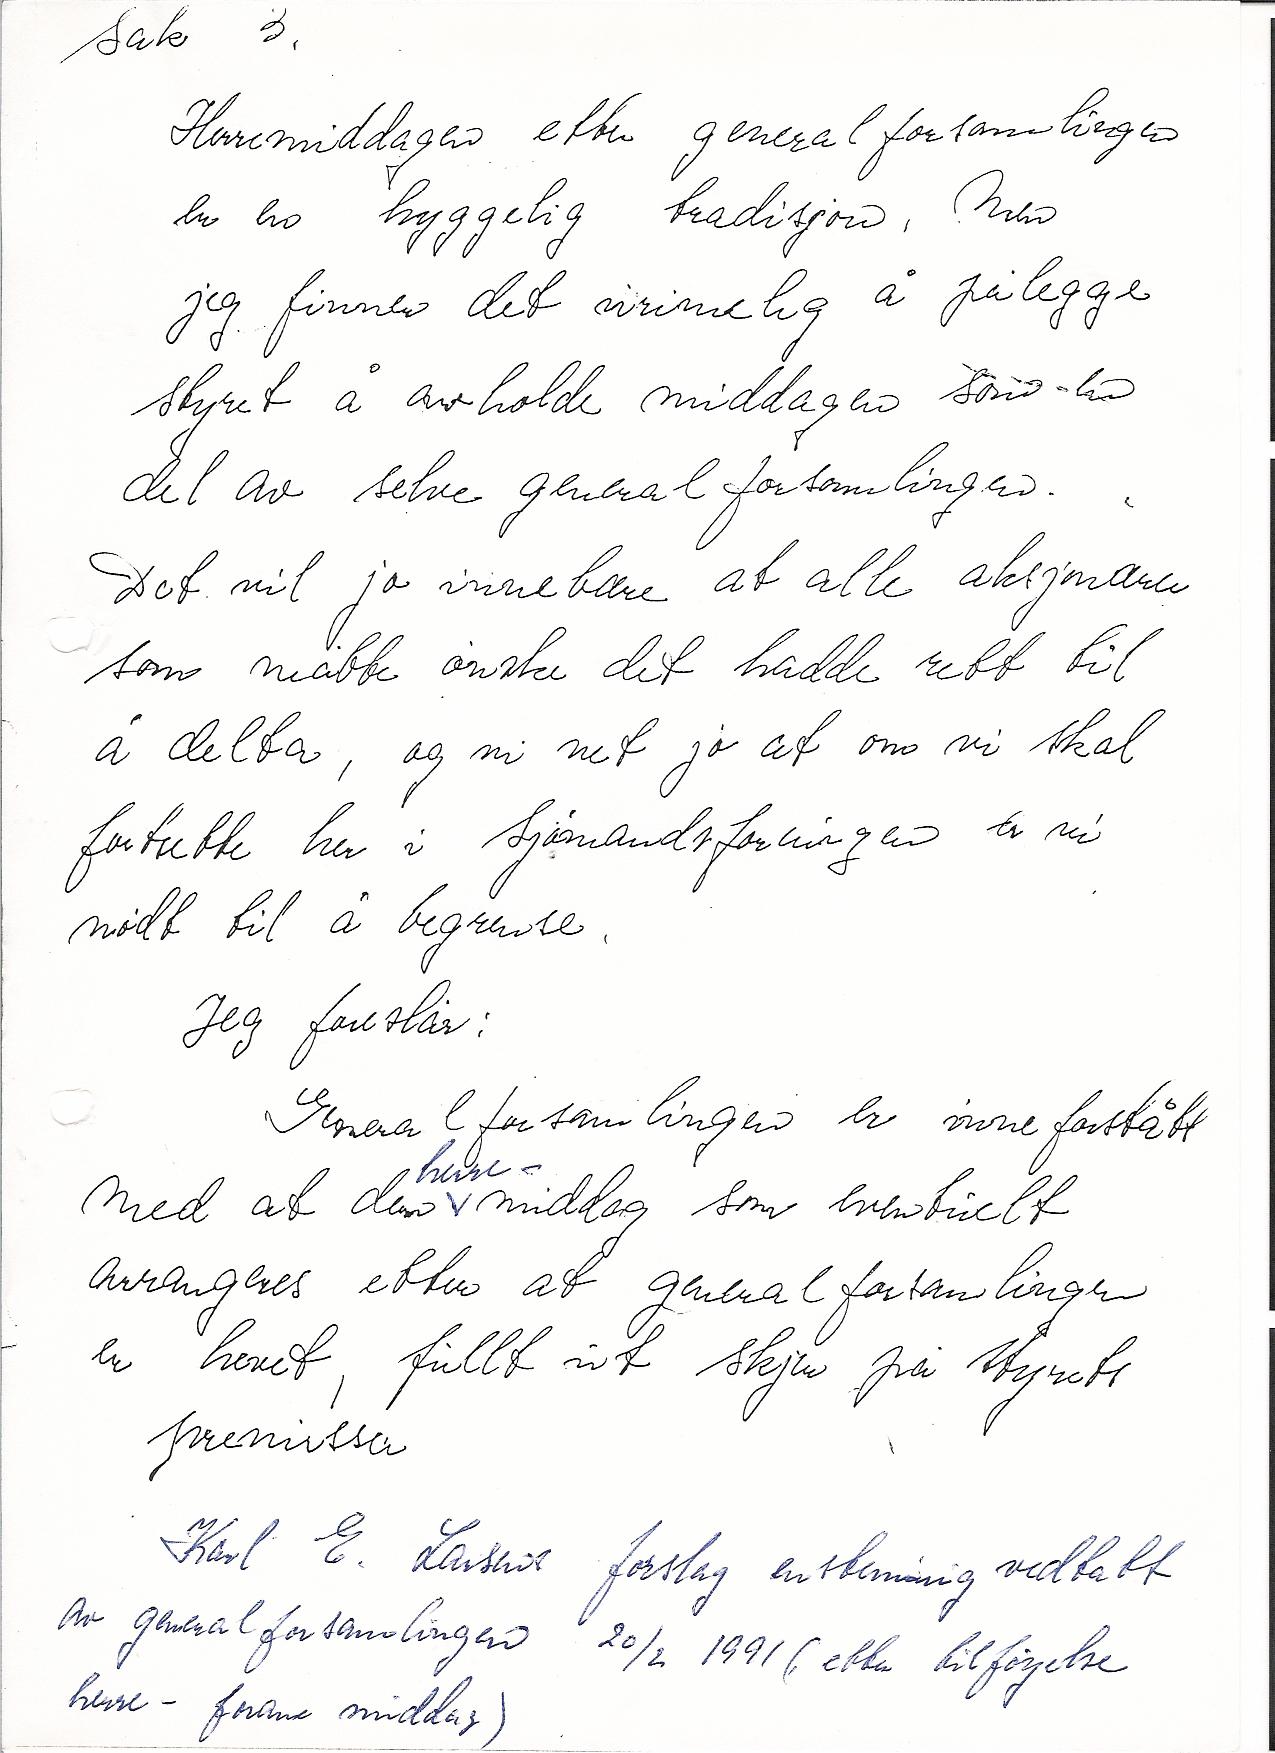 Sak 3.
Herremiddagen etter generalforsamlingen
er en hyggelig tradisjon. Men
jeg finner det urimelig å pålegge
styret å avholde middagen som en
del av selve generalforsamlingen.
Det vil jo innebære at alle aksjonærer
som måtte ønske det hadde rett til
å delta, og vi vet jo at om vi skal
fortsette her i Sjømandsforeningen er vi
nødt til å begrense.
Jeg foreslår:
Generalforsamlingen er inneforstått
herre-
med at den middag som eventuelt
arrangeres etter at generalforsamlingen
er hevet, fullt ut skjer på styrets
premisser
Karl E. Larsens forslag enstemmig vedtatt
av generalforsamlingen 20/2 1991 (etter tilføyelse
herre- foran middag)